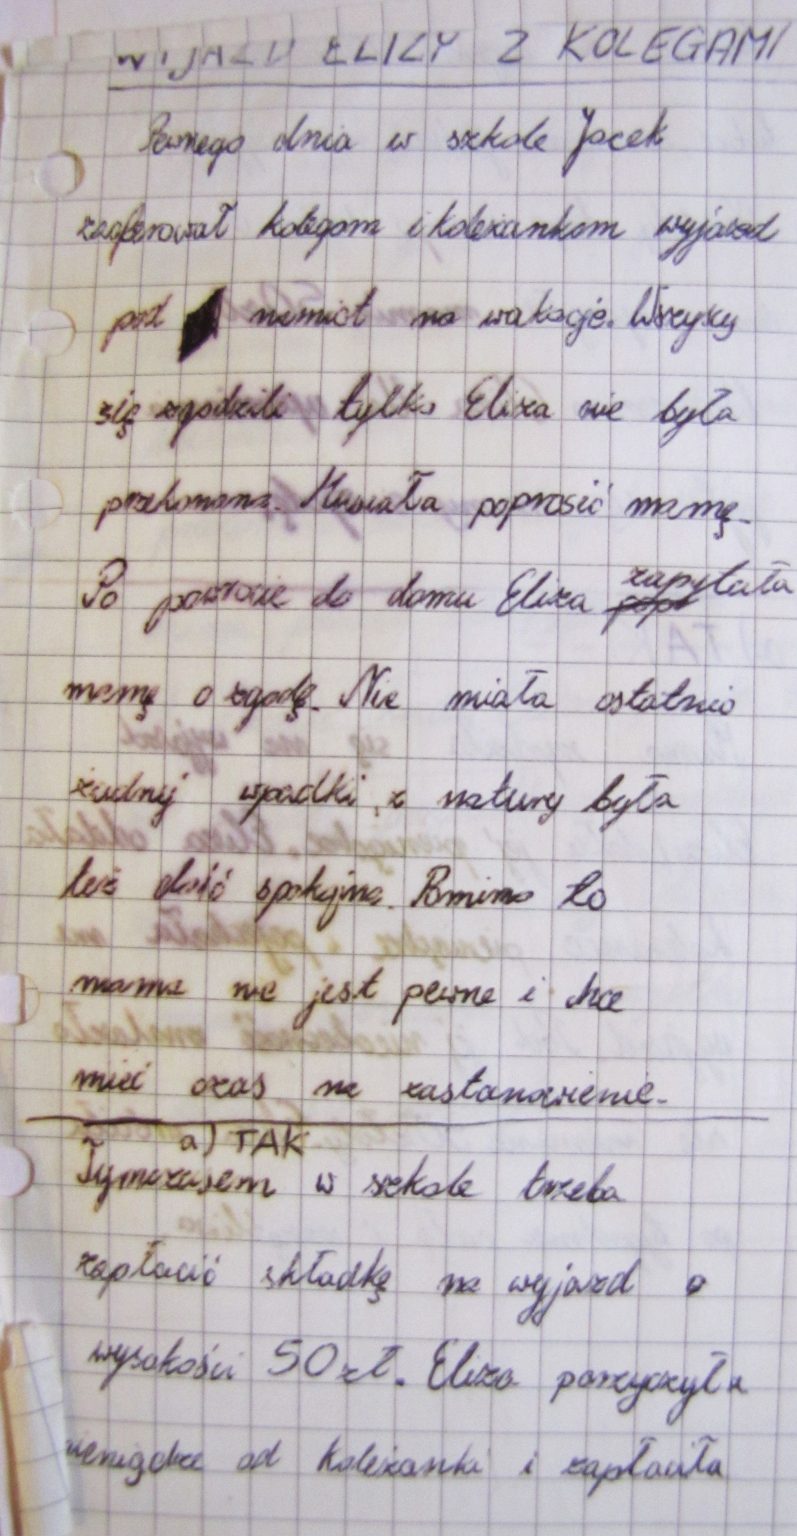 WYJAZD ELIZY Z KOLEGAMI
Pewnego dnia w szkole Jacek
zaoferował kolegom i koleżankom wyjazd
pod namiot na wakacje. Wszyscy
się zgodzili tylko Eliza nie była
przekonana. Musiała poprosić mamę.
Po powrocie do domu Eliza zapytała
mamę o zgodę. Nie miała ostatnio
żadnyj wpadki, z natury była
też dość spokojna. Pomimo to
mama nie jest pewna i chce
mieć czas na zastanowienie.
a) TAK
Tymczasem w szkole trzeba
zapłacić składkę na wyjazd o
wysokości 50 zł. Eliza pożyczyła
pieniądze od koleżanki i zapłaciła